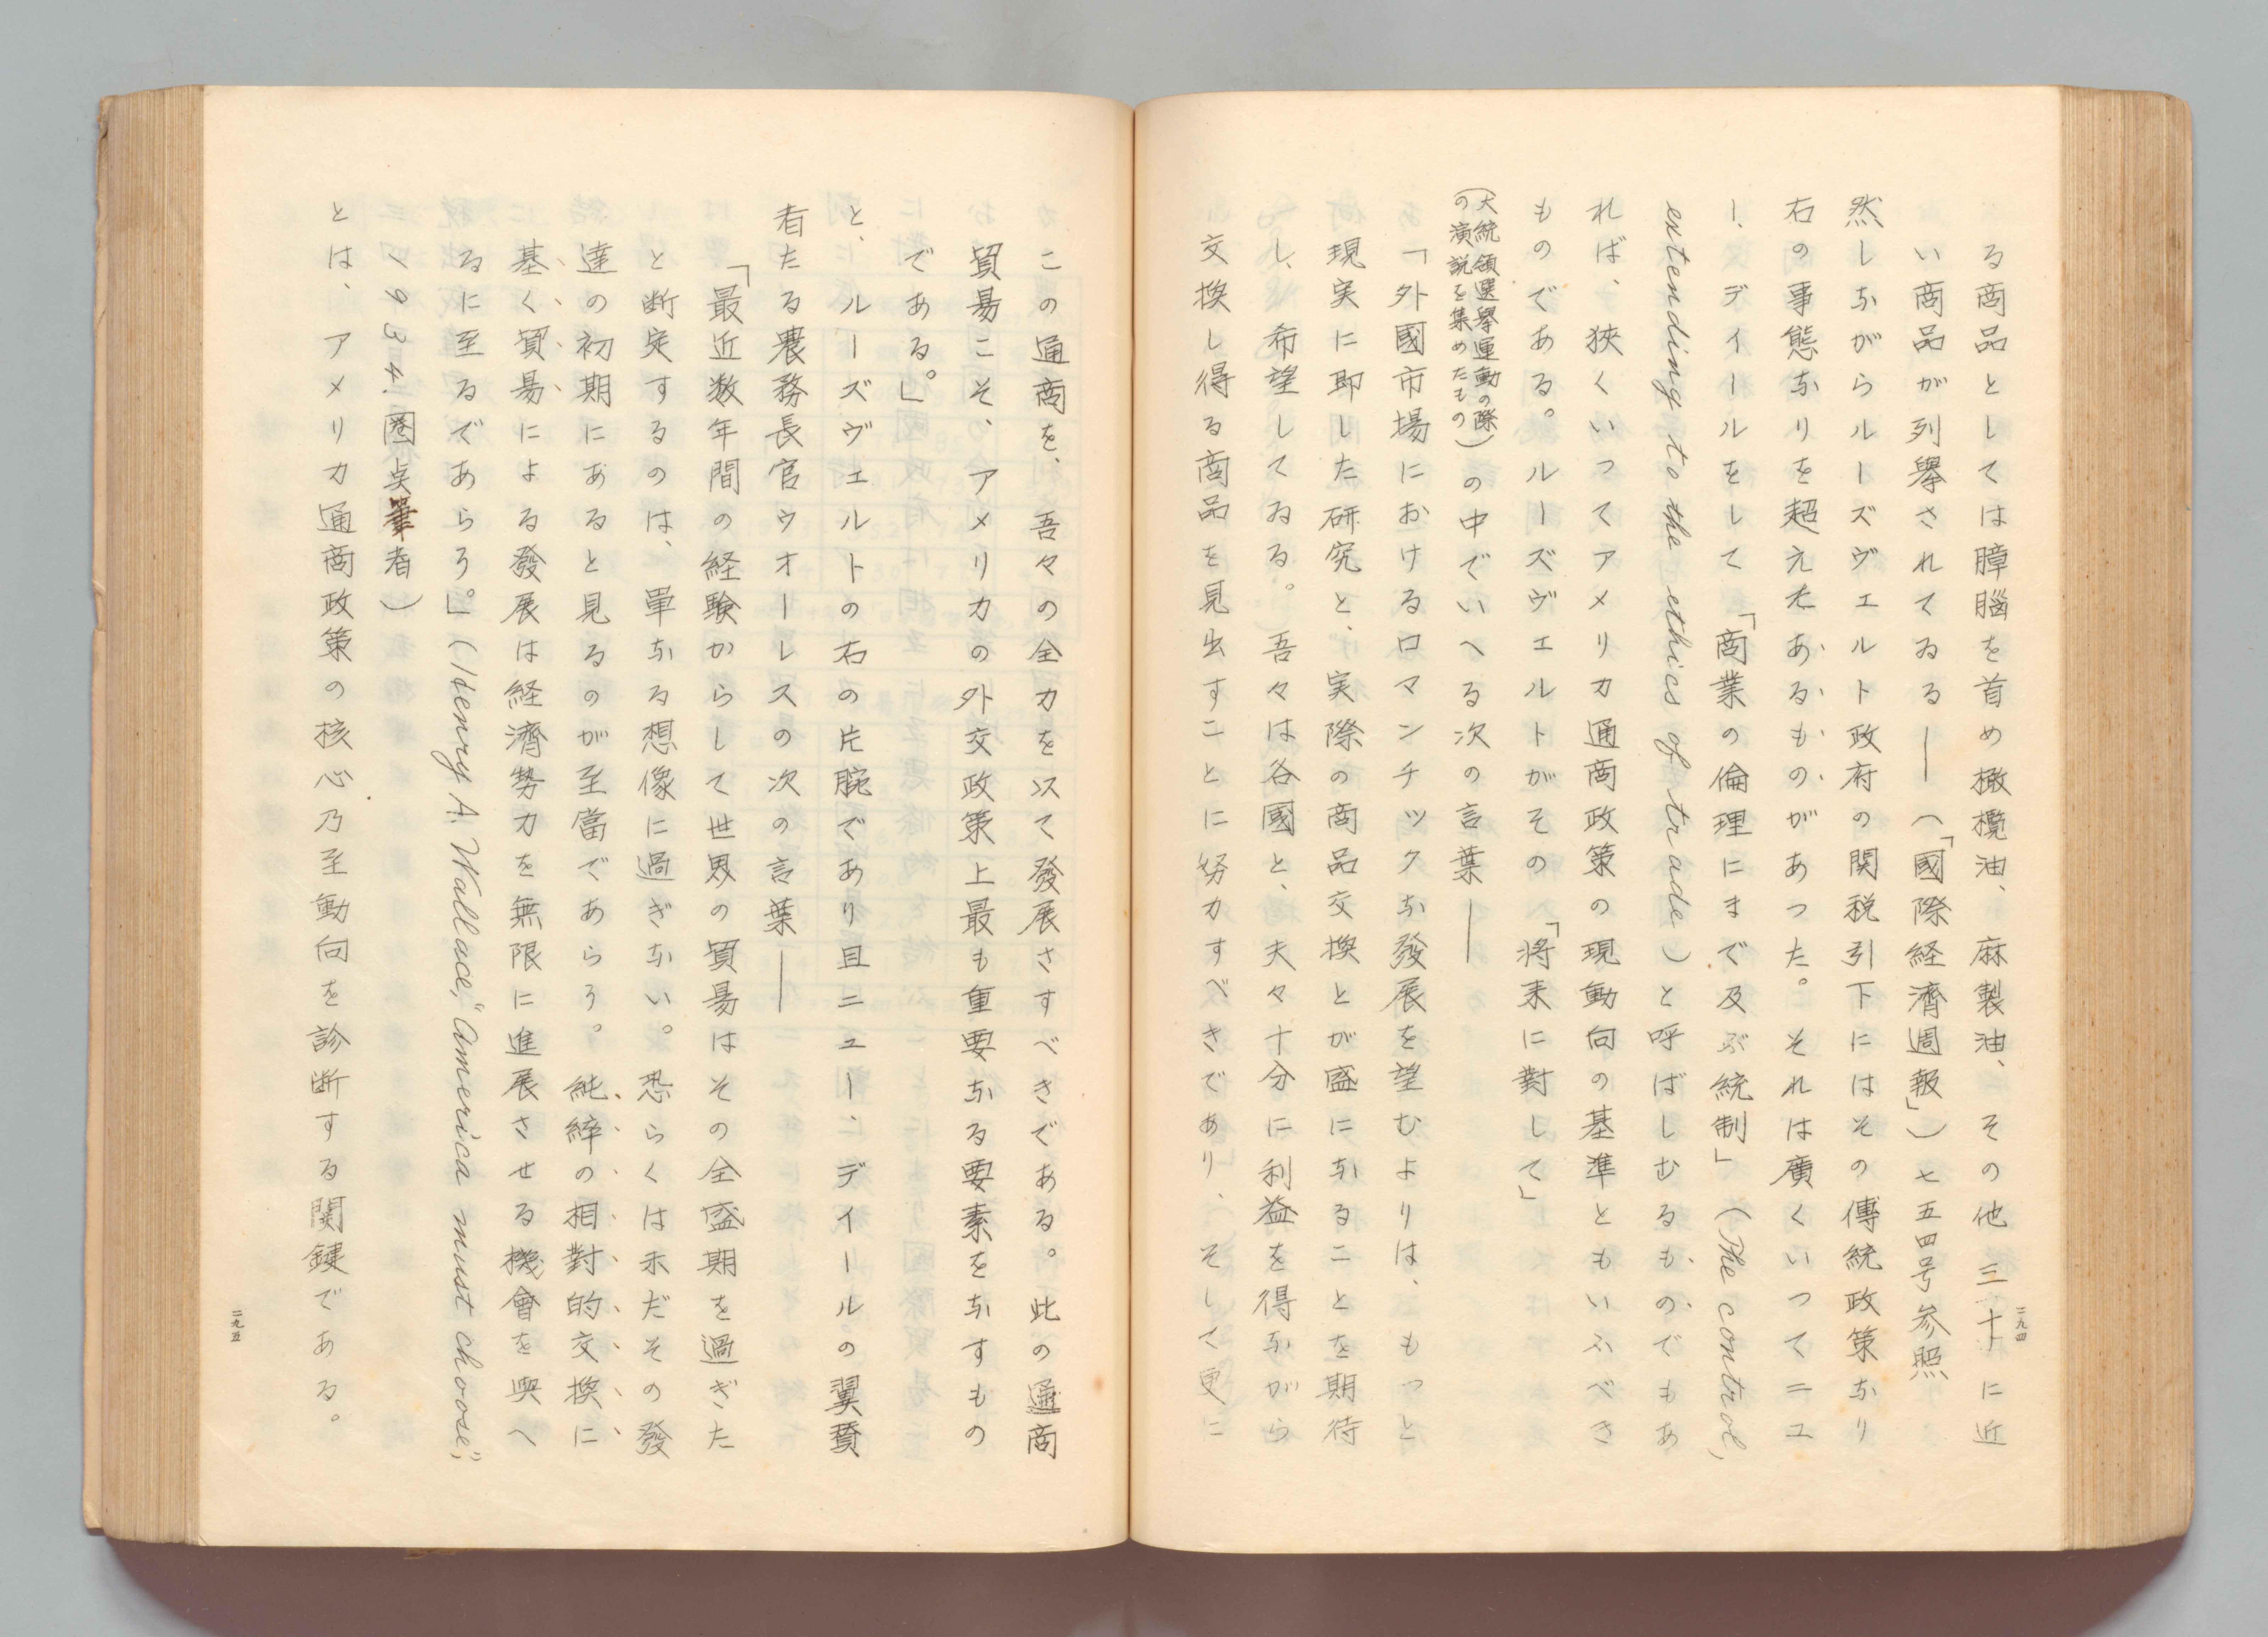 二九四
る商品としては障腦を首め橄欖油、麻製油、その他三十に近
い商品が列擧されてゐる――(「國際経濟週報」)七五四号参照
然しながらルーズヴェルト政府の関税引下にはその傳統政策なり
右の事態なりを超えたあるものがあった。それは廣くいってニュ
ー、ディールをして「商業の倫理にまで及ぶ統制」(The control,
extending to the ethics of trade)と呼ばしむるものでもあ
れば、狭くいってアメリカ通商政策の現動向の基準ともいふべき
ものである。ルーズヴェルトがその「將来に對して」
(大統領選擧運動の際の演説を集めたもの)の中でいへる次の言葉――
「外國市場におけるロマンチックな發展を望むよりは、もっと
現実に即した研究と、実際の商品交換とが盛になることを期待
し、希望してゐる。吾々は各國と、夫々十分に利益を得ながら
交換し得る商品を見出すことに努力すべきであり、そして更に
この通商を、吾々の全力を以て發展さすべきである。此の通商
貿易こそ、アメリカの外交政策上最も重要なる要素をなすもの
である。」
と、ルーズヴェルトの右の片腕であり且ニュー、ディールの翼賛
者たる農務長官ウオーレスの次の言葉――
「最近数年間の経験からして世界の貿易はその全盛期を過ぎた
と断定するのは、單なる想像に過ぎない。恐らくは未だその發
達の初期にあると見るのが至當であらう。純粹の相對的交換に
基く貿易による發展は経濟勢力を無限に進展させる機會を與へ
るに至るであらう。」(Henry A. Wallace, "America must choose",
1934. 圏点筆者)
とは、アメリカ通商政策の核心乃至動向を診断する関鍵である。
二九五